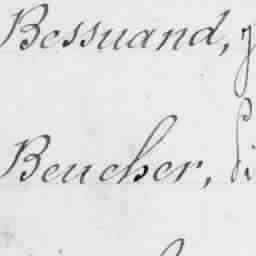 Bessuand,
Beucher,